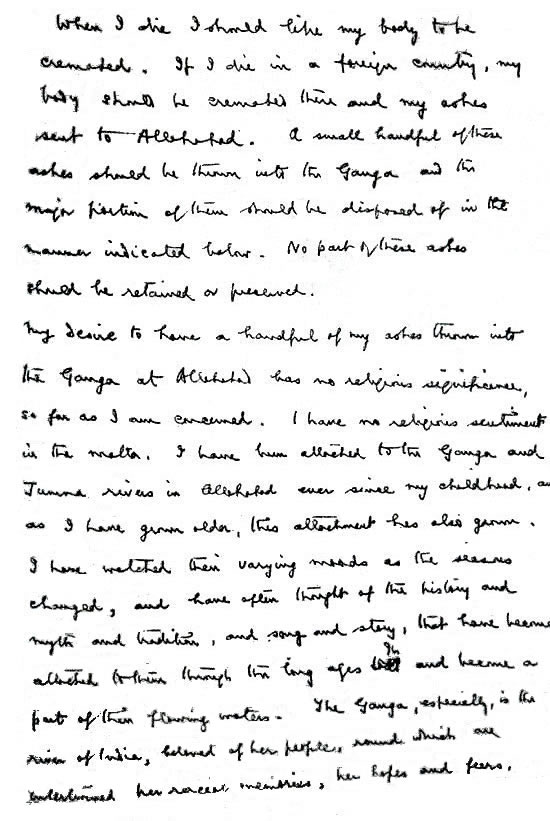 When I die I should like my body to be
cremated. If I die in a foreign country, my
body should be cremated there and my ashes
sent to Allahabad. A small handful of these
ashes should be thrown into the Ganga and the
major portion of them should be disposed of in the
manner indicated below. No part of these ashes
should be retained or preserved.
My desire to have a handful of my ashes thrown into
the Ganga at Allahabad has no religious significance,
so far as I am concerned. I have no religious sentiment
in the matter. I have been attached to the Ganga and
Jumna rivers in Allahabad ever since my childhood, an
as I have grown older, this attachment has also grown.
I have watched their varying moods as the seasons
changed, and have often thought of the history and
myth and tradition, and song and story, that have become
attached to them through the long ages and become a
part of their flowing waters. The Ganga, especially, is the
river of India, beloved of her people, round which are
intertwined her racial memories, her hopes and fears,